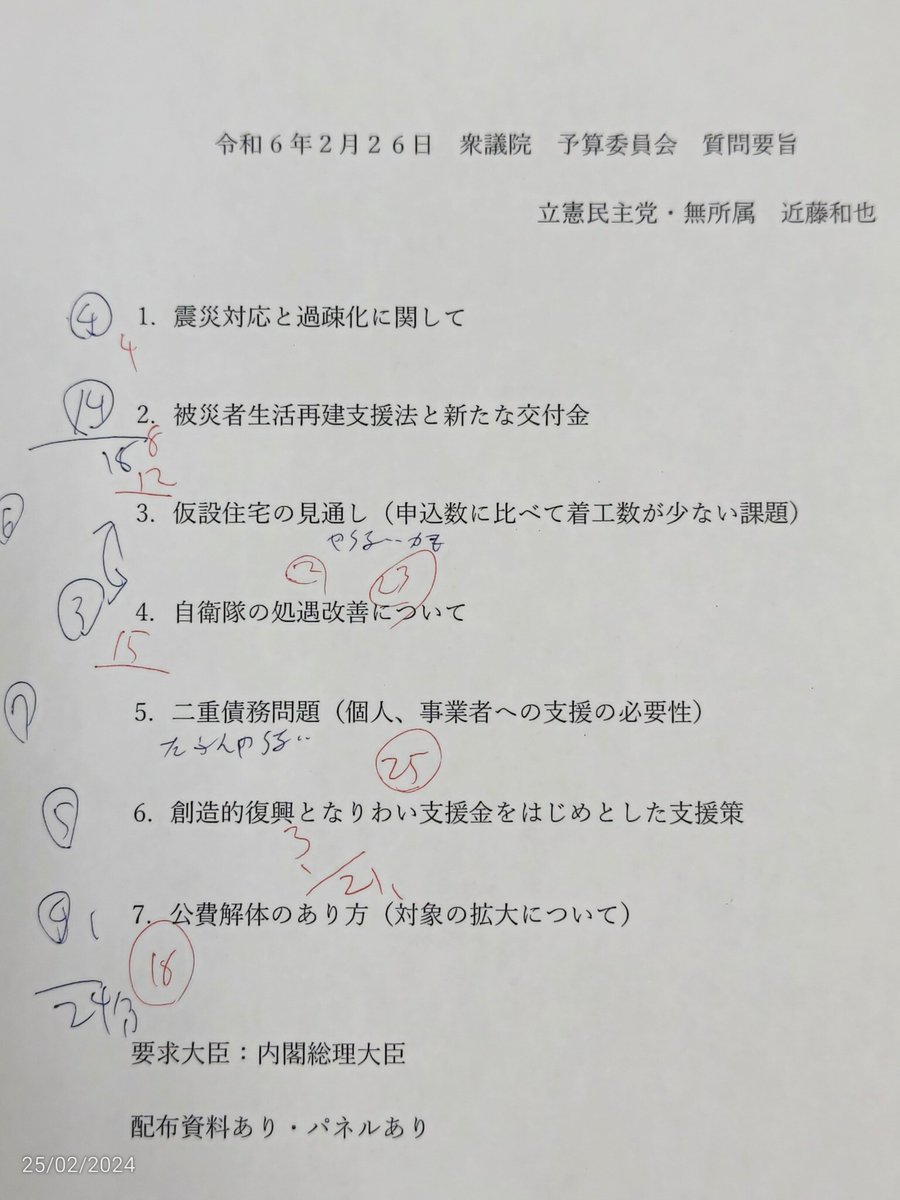 令和６年２月２６日　衆議院　予算委員会　質問要旨
立憲民主党・無所属　近藤和也
④ 1. 震災対応と過疎化に関して
4
14 2. 被災者生活再建支援法と新たな交付金
8
18
12
⑥ 3. 仮設住宅の見通し（申込数に比べて着工数が少ない課題）
② 23
③ 4. 自衛隊の処遇改善について
15
⑦ 5. 二重債務問題（個人、事業者への支援の必要性）
25
⑤ 6. 創造的復興となりわい支援金をはじめとした支援策
3
21
7. 公費解体のあり方（対象の拡大について）
18
24分
要求大臣：内閣総理大臣
配布資料あり・パネルあり
25/02/2024